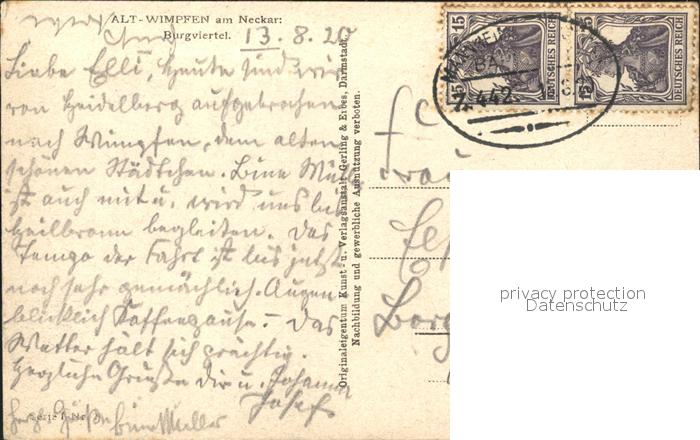 ALT-WIMPFEN am Neckar:
Burgviertel.
13.8.20
Liebe Elli, heute sind wir
von Heidelberg aufgebrochen
nach Wimpfen, dem alten
schönen Städtchen.
ist auch mit u. wird uns bis
Heilbronn begleiten. Das
Tempo der Fahrt ist bis jetzt
noch sehr gemächlich. Augen-
blicklich Kaffeepause. – Das
Wetter hält sich prächtig.
Herzliche Grüße dir u. Johanna
Josef
Herzl. Grüße Müller
Serie I Nr.
Originaleigentum Kunst- u. Verlagsanstalt Gerling & Erbes, Darmstadt.
Nachbildung und gewerbliche Ausnützung verboten.
15 DEUTSCHES REICH
15 DEUTSCHES REICH
Z. 442
Frau
privacy protection
Datenschutz